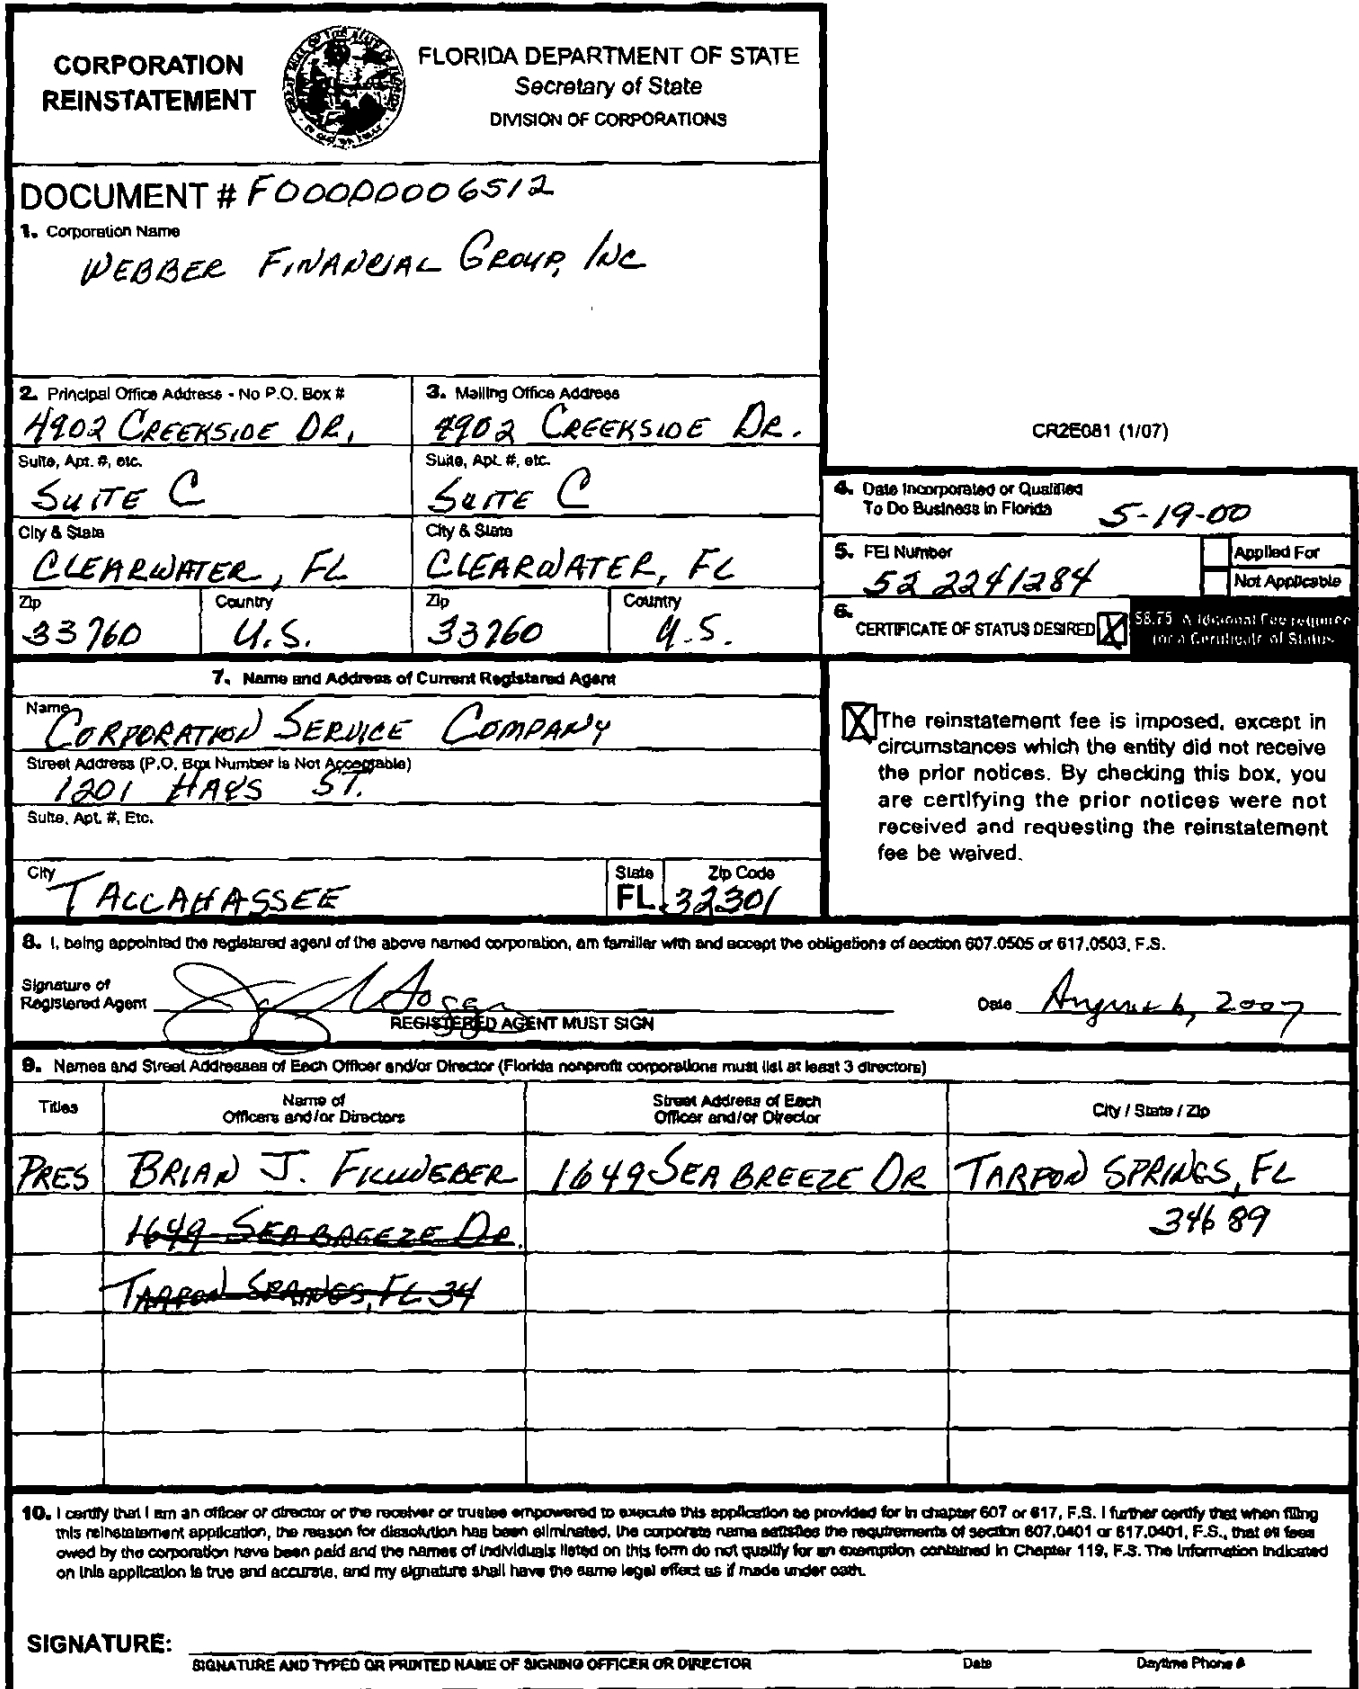 CORPORATION
REINSTATEMENT
FLORIDA DEPARTMENT OF STATE
Secretary of State
DIVISION OF CORPORATIONS
DOCUMENT # F00000006512
1. Corporation Name
WEBBER FINANCIAL GROUP, INC
2. Principal Office Address - No P.O. Box #
3. Mailing Office Address
4902 CREEKSIDE DR,
4902 CREEKSIDE DR.
CR2E081 (1/07)
Suite, Apt. #, etc.
Suite, Apt. #, etc.
SUITE C
SUITE C
4. Date Incorporated or Qualified
To Do Business in Florida
5-19-00
City & State
City & State
CLEARWATER, FL
CLEARWATER, FL
5. FEI Number
52 2241284
Applied For
Not Applicable
Zip
Country
Zip
Country
33760
U.S.
33760
U.S.
6.
CERTIFICATE OF STATUS DESIRED X
$8.75 Additional Fee required
for a Certificate of Status
7. Name and Address of Current Registered Agent
Name
CORPORATION SERVICE COMPANY
Street Address (P.O. Box Number is Not Acceptable)
1201 HAYS ST.
Suite, Apt. #, Etc.
City
TALLAHASSEE
State
FL
Zip Code
32301
X The reinstatement fee is imposed, except in
circumstances which the entity did not receive
the prior notices. By checking this box, you
are certifying the prior notices were not
received and requesting the reinstatement
fee be waived.
8. I, being appointed the registered agent of the above named corporation, am familiar with and accept the obligations of section 607.0505 or 617.0503, F.S.
Signature of
Registered Agent
REGISTERED AGENT MUST SIGN
Date August 6, 2007
9. Names and Street Addresses of Each Officer and/or Director (Florida nonprofit corporations must list at least 3 directors)
Titles
Name of
Officers and/or Directors
Street Address of Each
Officer and/or Director
City / State / Zip
PRES
BRIAN J. FILLWEBER
1649 SEA BREEZE DR
TARPON SPRINGS, FL
34689
1649 SEABREEZE DR.
TARPON SPRINGS, FL 34
10. I certify that I am an officer or director or the receiver or trustee empowered to execute this application as provided for in chapter 607 or 617, F.S. I further certify that when filing
this reinstatement application, the reason for dissolution has been eliminated, the corporate name satisfies the requirements of section 607.0401 or 617.0401, F.S., that all fees
owed by the corporation have been paid and the names of individuals listed on this form do not qualify for an exemption contained in Chapter 119, F.S. The information indicated
on this application is true and accurate, and my signature shall have the same legal effect as if made under oath.
SIGNATURE:
SIGNATURE AND TYPED OR PRINTED NAME OF SIGNING OFFICER OR DIRECTOR
Date
Daytime Phone #